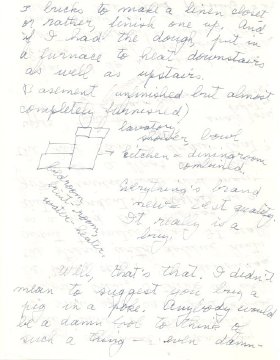 & bricks to make a linen closet
or rather, finish one up. And
if I had the dough, put in
a furnace to heat downstairs
as well as upstairs.
(Basement unfinished but almost
completely furnished)
lavatory
shower, bowl
kitchen & diningroom
combined.
bedroom,
fruit room,
water heater.
Everything's brand
new & best quality.
It really is a
buy.
Well, that's that. I didn't
mean to suggest you buy a
pig in a poke. Anybody would
be a damn fool to think of
such a thing — even damn-